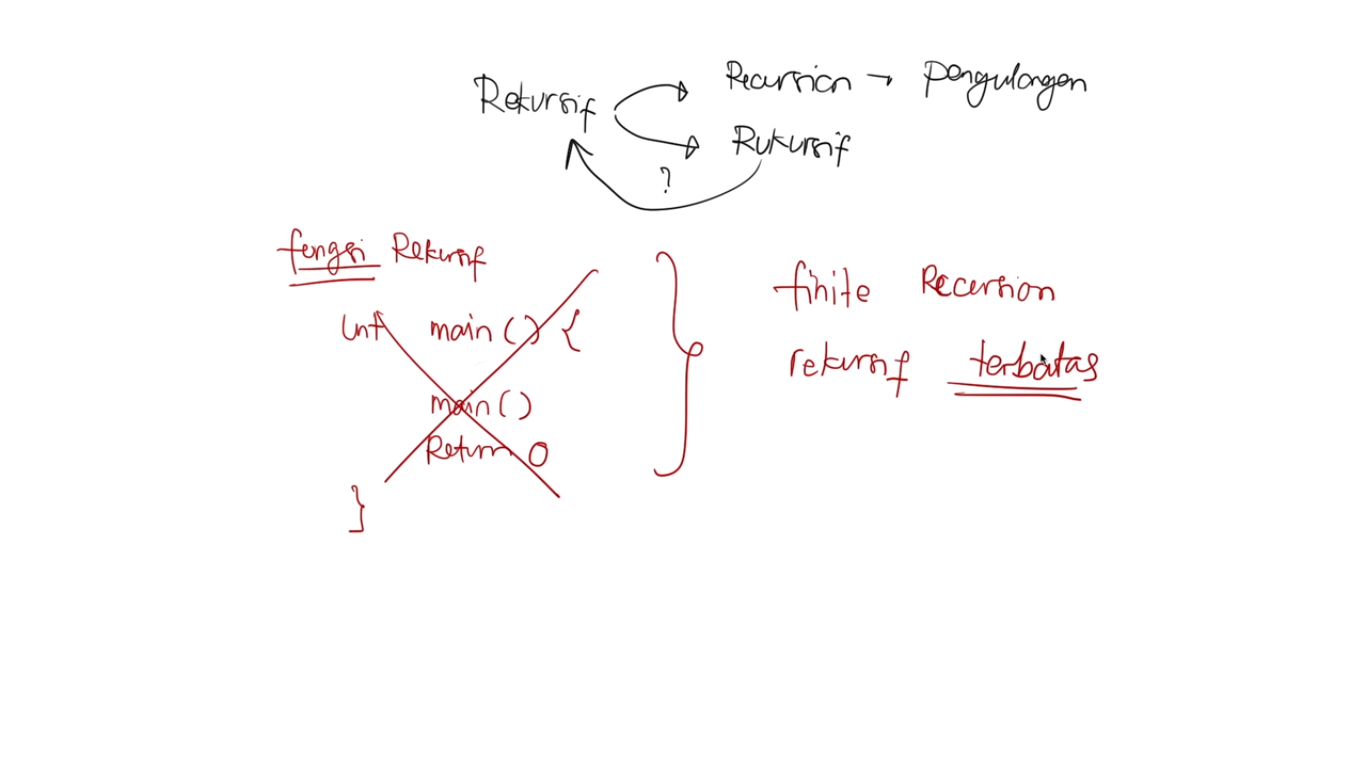 Rekursif
Recursion → Pengulangan
Rukursif
?
fungsi Rekursif
Int main () {
main ()
Return 0
}
finite Recursion
rekursif terbatas